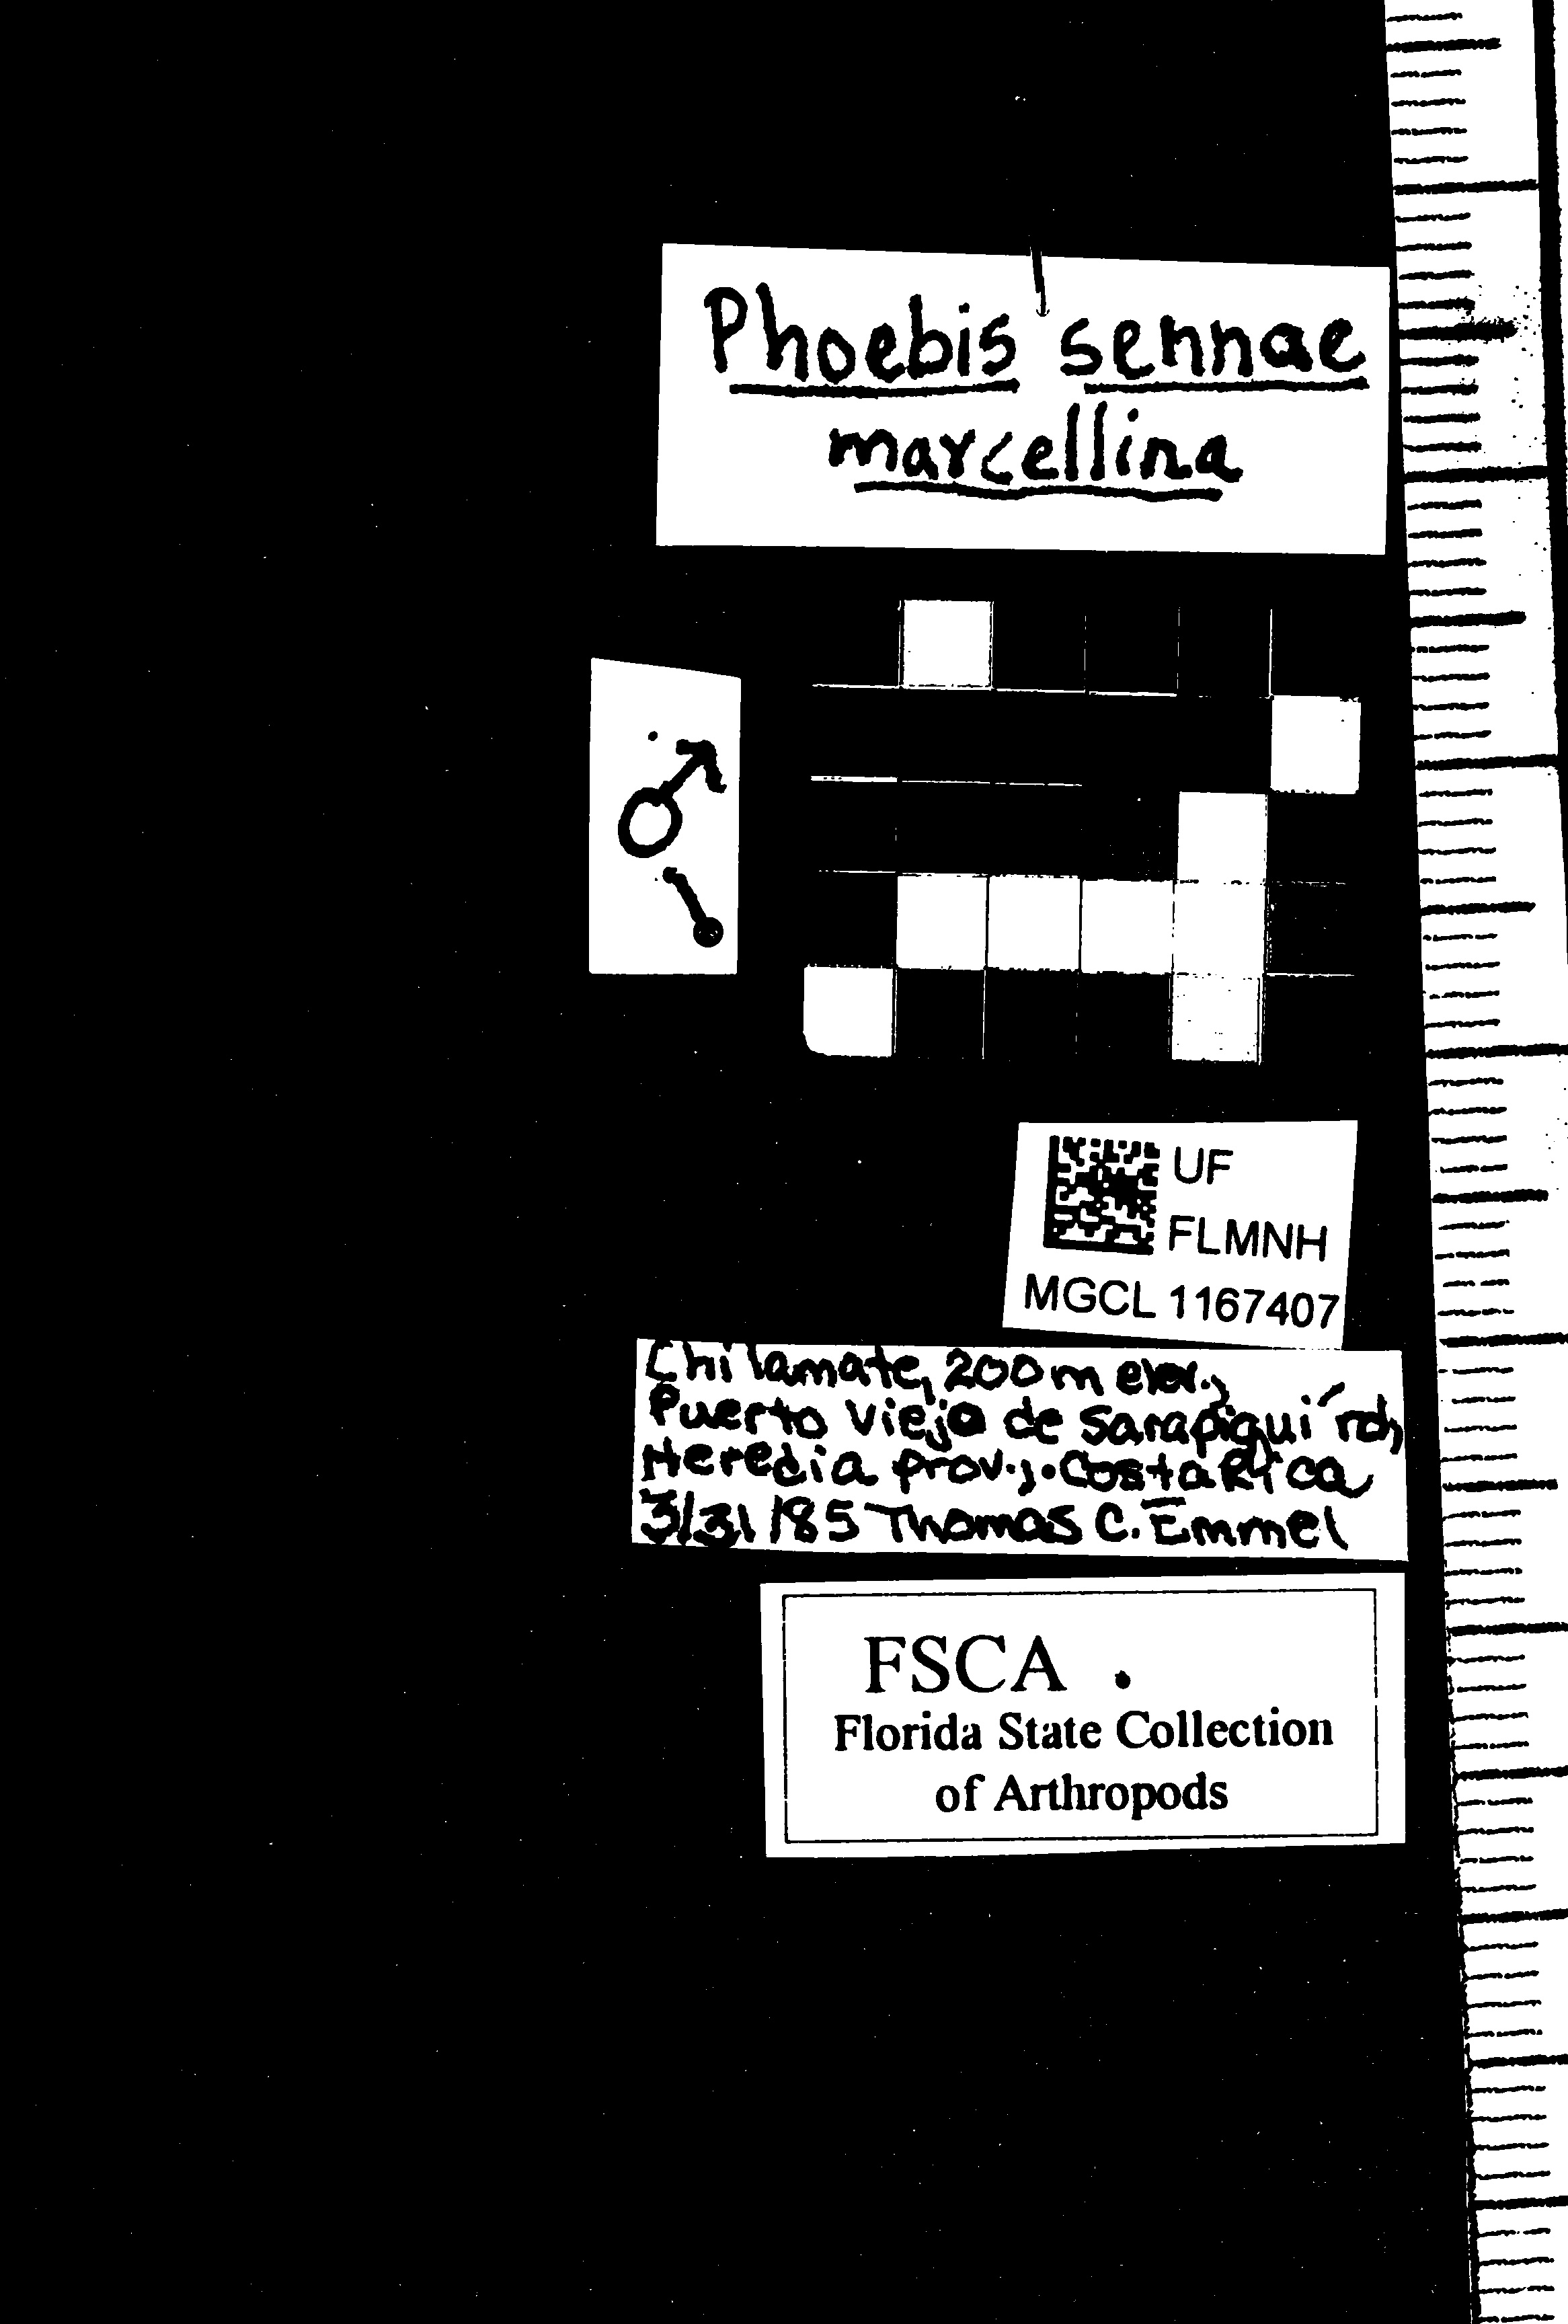 Phoebis sennae
marcellina
♂
UF
FLMNH
MGCL 1167407
Chilamate, 200m elev.,
Puerto Viejo de Sarapiquí rd,
Heredia Prov., Costa Rica
3/31/85 Thomas C. Emmel
FSCA
Florida State Collection
of Arthropods